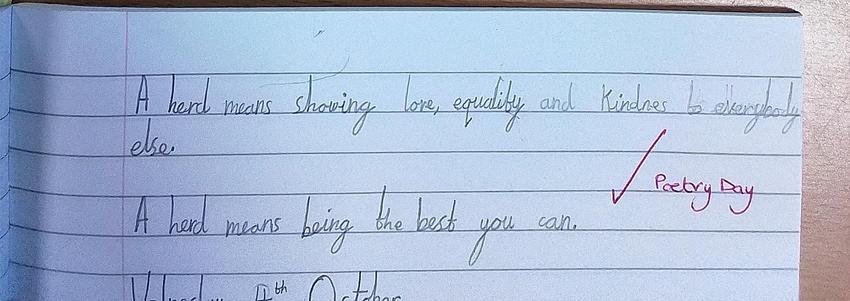 A herd means showing love, equality and Kindnes to everybody
else.
Poetry Day
A herd means being the best you can.
4th October